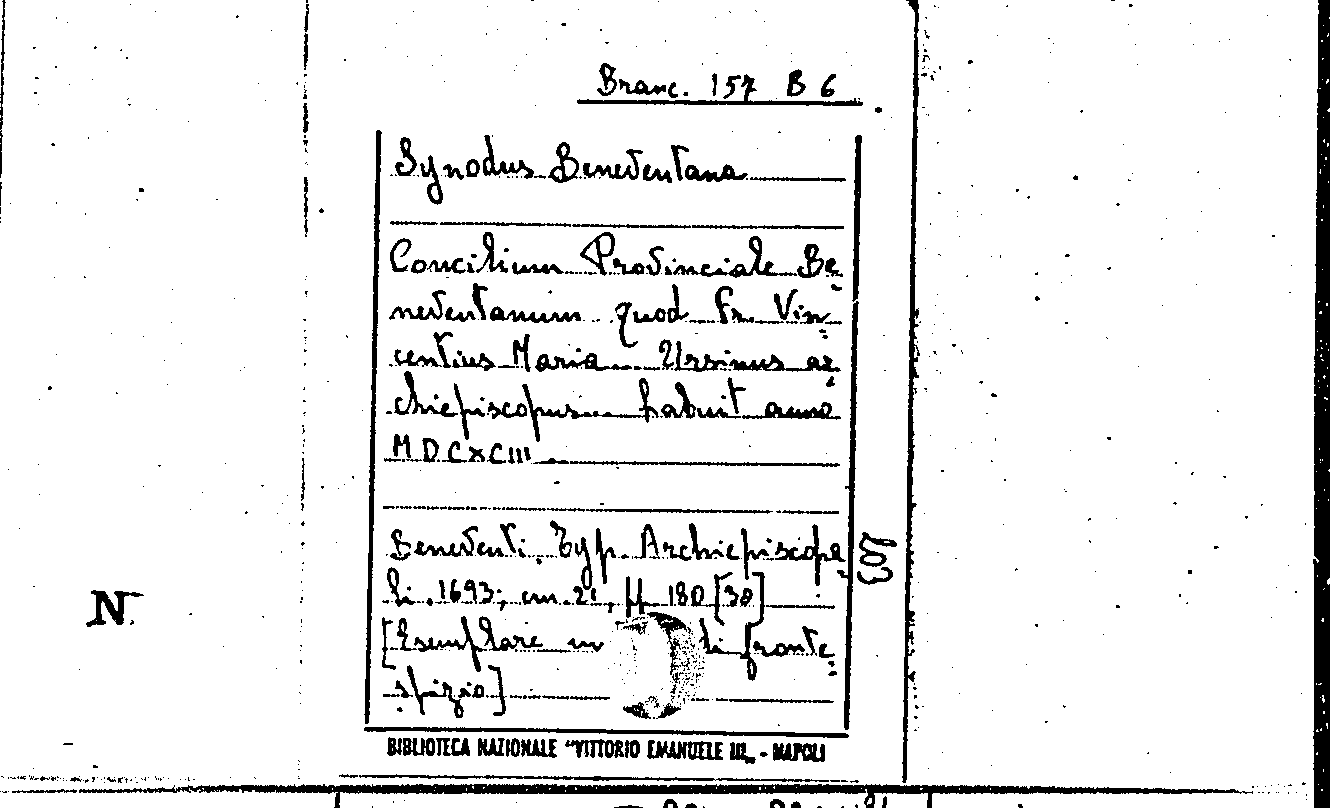 Branc. 157 B 6
Synodus Beneventana
Concilium Provinciale Be
neventanum quod Fr. Vin
centius Maria... Ursinus ar
chiepiscopus... habuit anno
MDCXCIII.
Beneventi. Typ. Archiepiscopa
li. 1693; cm. 21, pp. 180 [38]
[Esemplare m li fronte
spizio]
203
N
BIBLIOTECA NAZIONALE "VITTORIO EMANUELE III„ - NAPOLI